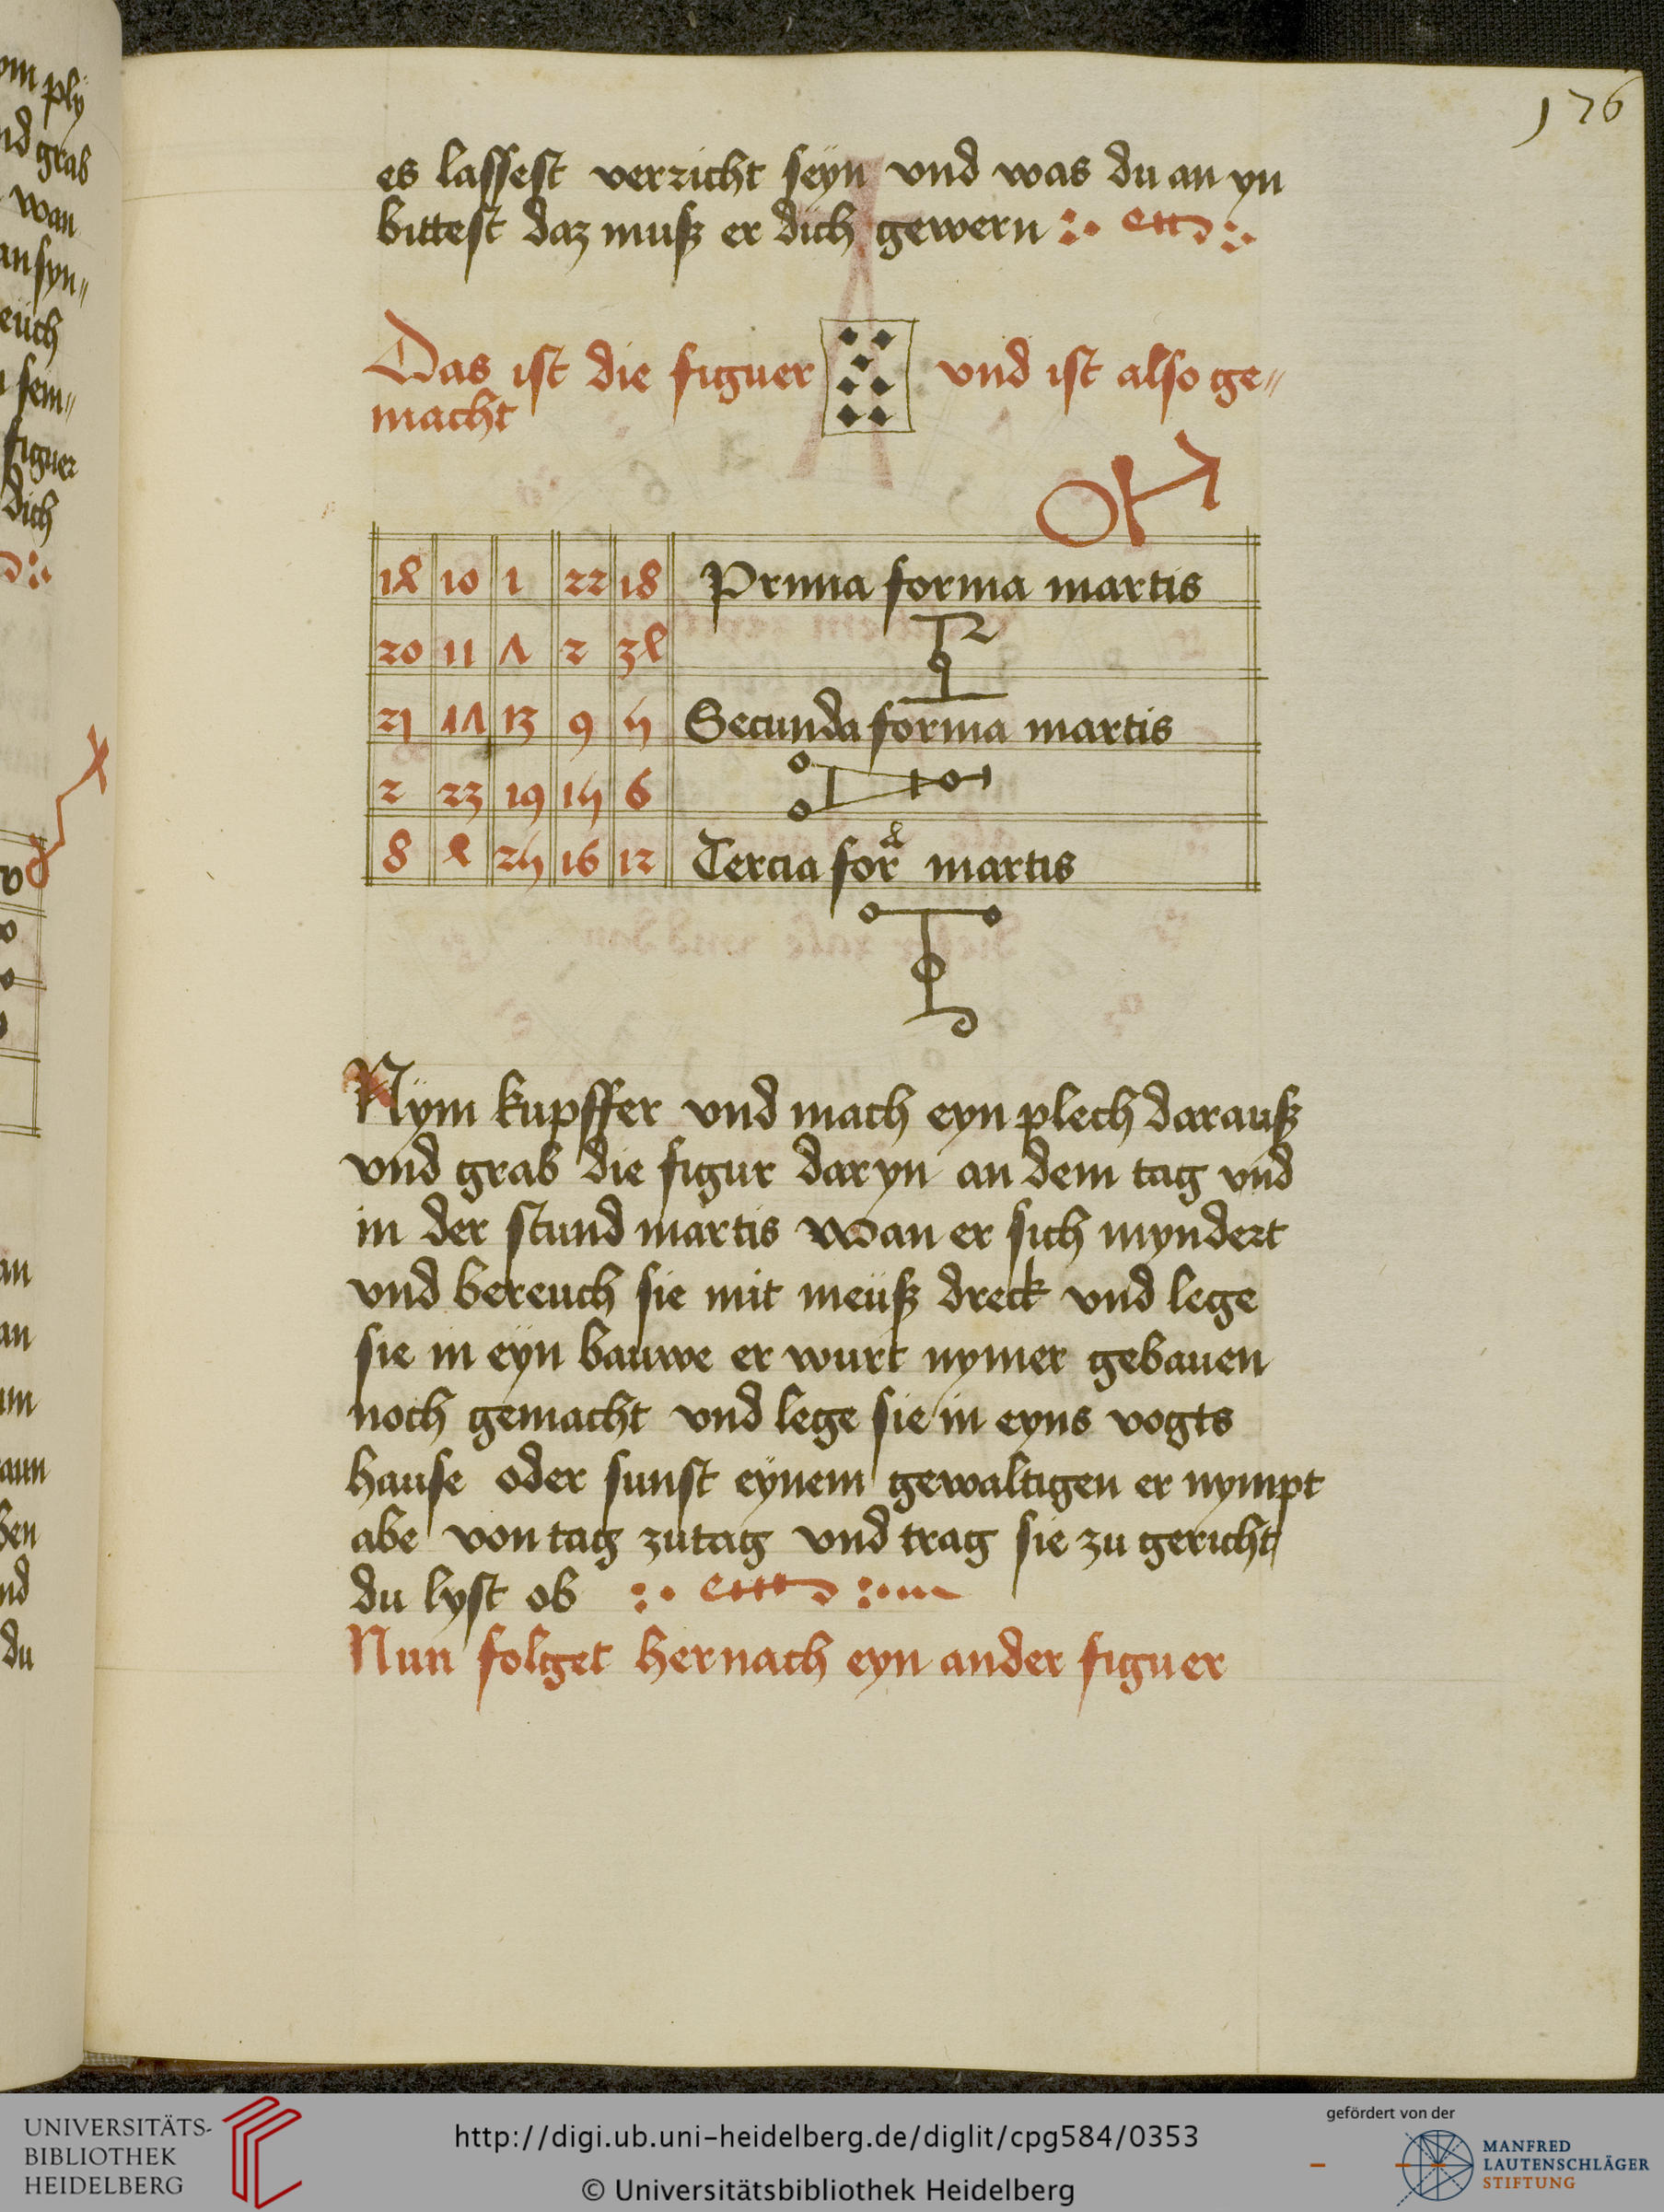 176
es lassest verzicht seyn vnd was du an yn
bittest daz musz er dich gewern :· etc :·
Das ist die figuer und ist also ge„
macht
14 10 1 22 18 Prima forma martis
20 11 7 2 34
21 17 13 9 5 Secunda forma martis
2 23 19 15 6
8 4 25 16 12 Tercia for^a martis
Nÿm kupffer vnd mach eyn plech darausz
vnd grab die figur daryn an dem tag vnd
in der stund martis wan er sich myndert
vnd bereuch sie mit meüsz dreck vnd lege
sie in eyn bauwe er wurt nymer gebauen
noch gemacht vnd lege sie in eyns vogts
hause oder sunst eynem gewaltigen er nympt
abe von tag zu tag vnd trag sie zu gericht
du lyst ob :· etc :·
Nun folget hernach eyn ander figuer
om ply
nd grab
wan
an syn„
euch
sem„
figuer
dich
an
an
im
ben
nd
du
UNIVERSITÄTS-
BIBLIOTHEK
HEIDELBERG
http://digi.ub.uni-heidelberg.de/diglit/cpg584/0353
© Universitätsbibliothek Heidelberg
gefördert von der
MANFRED
LAUTENSCHLÄGER
STIFTUNG